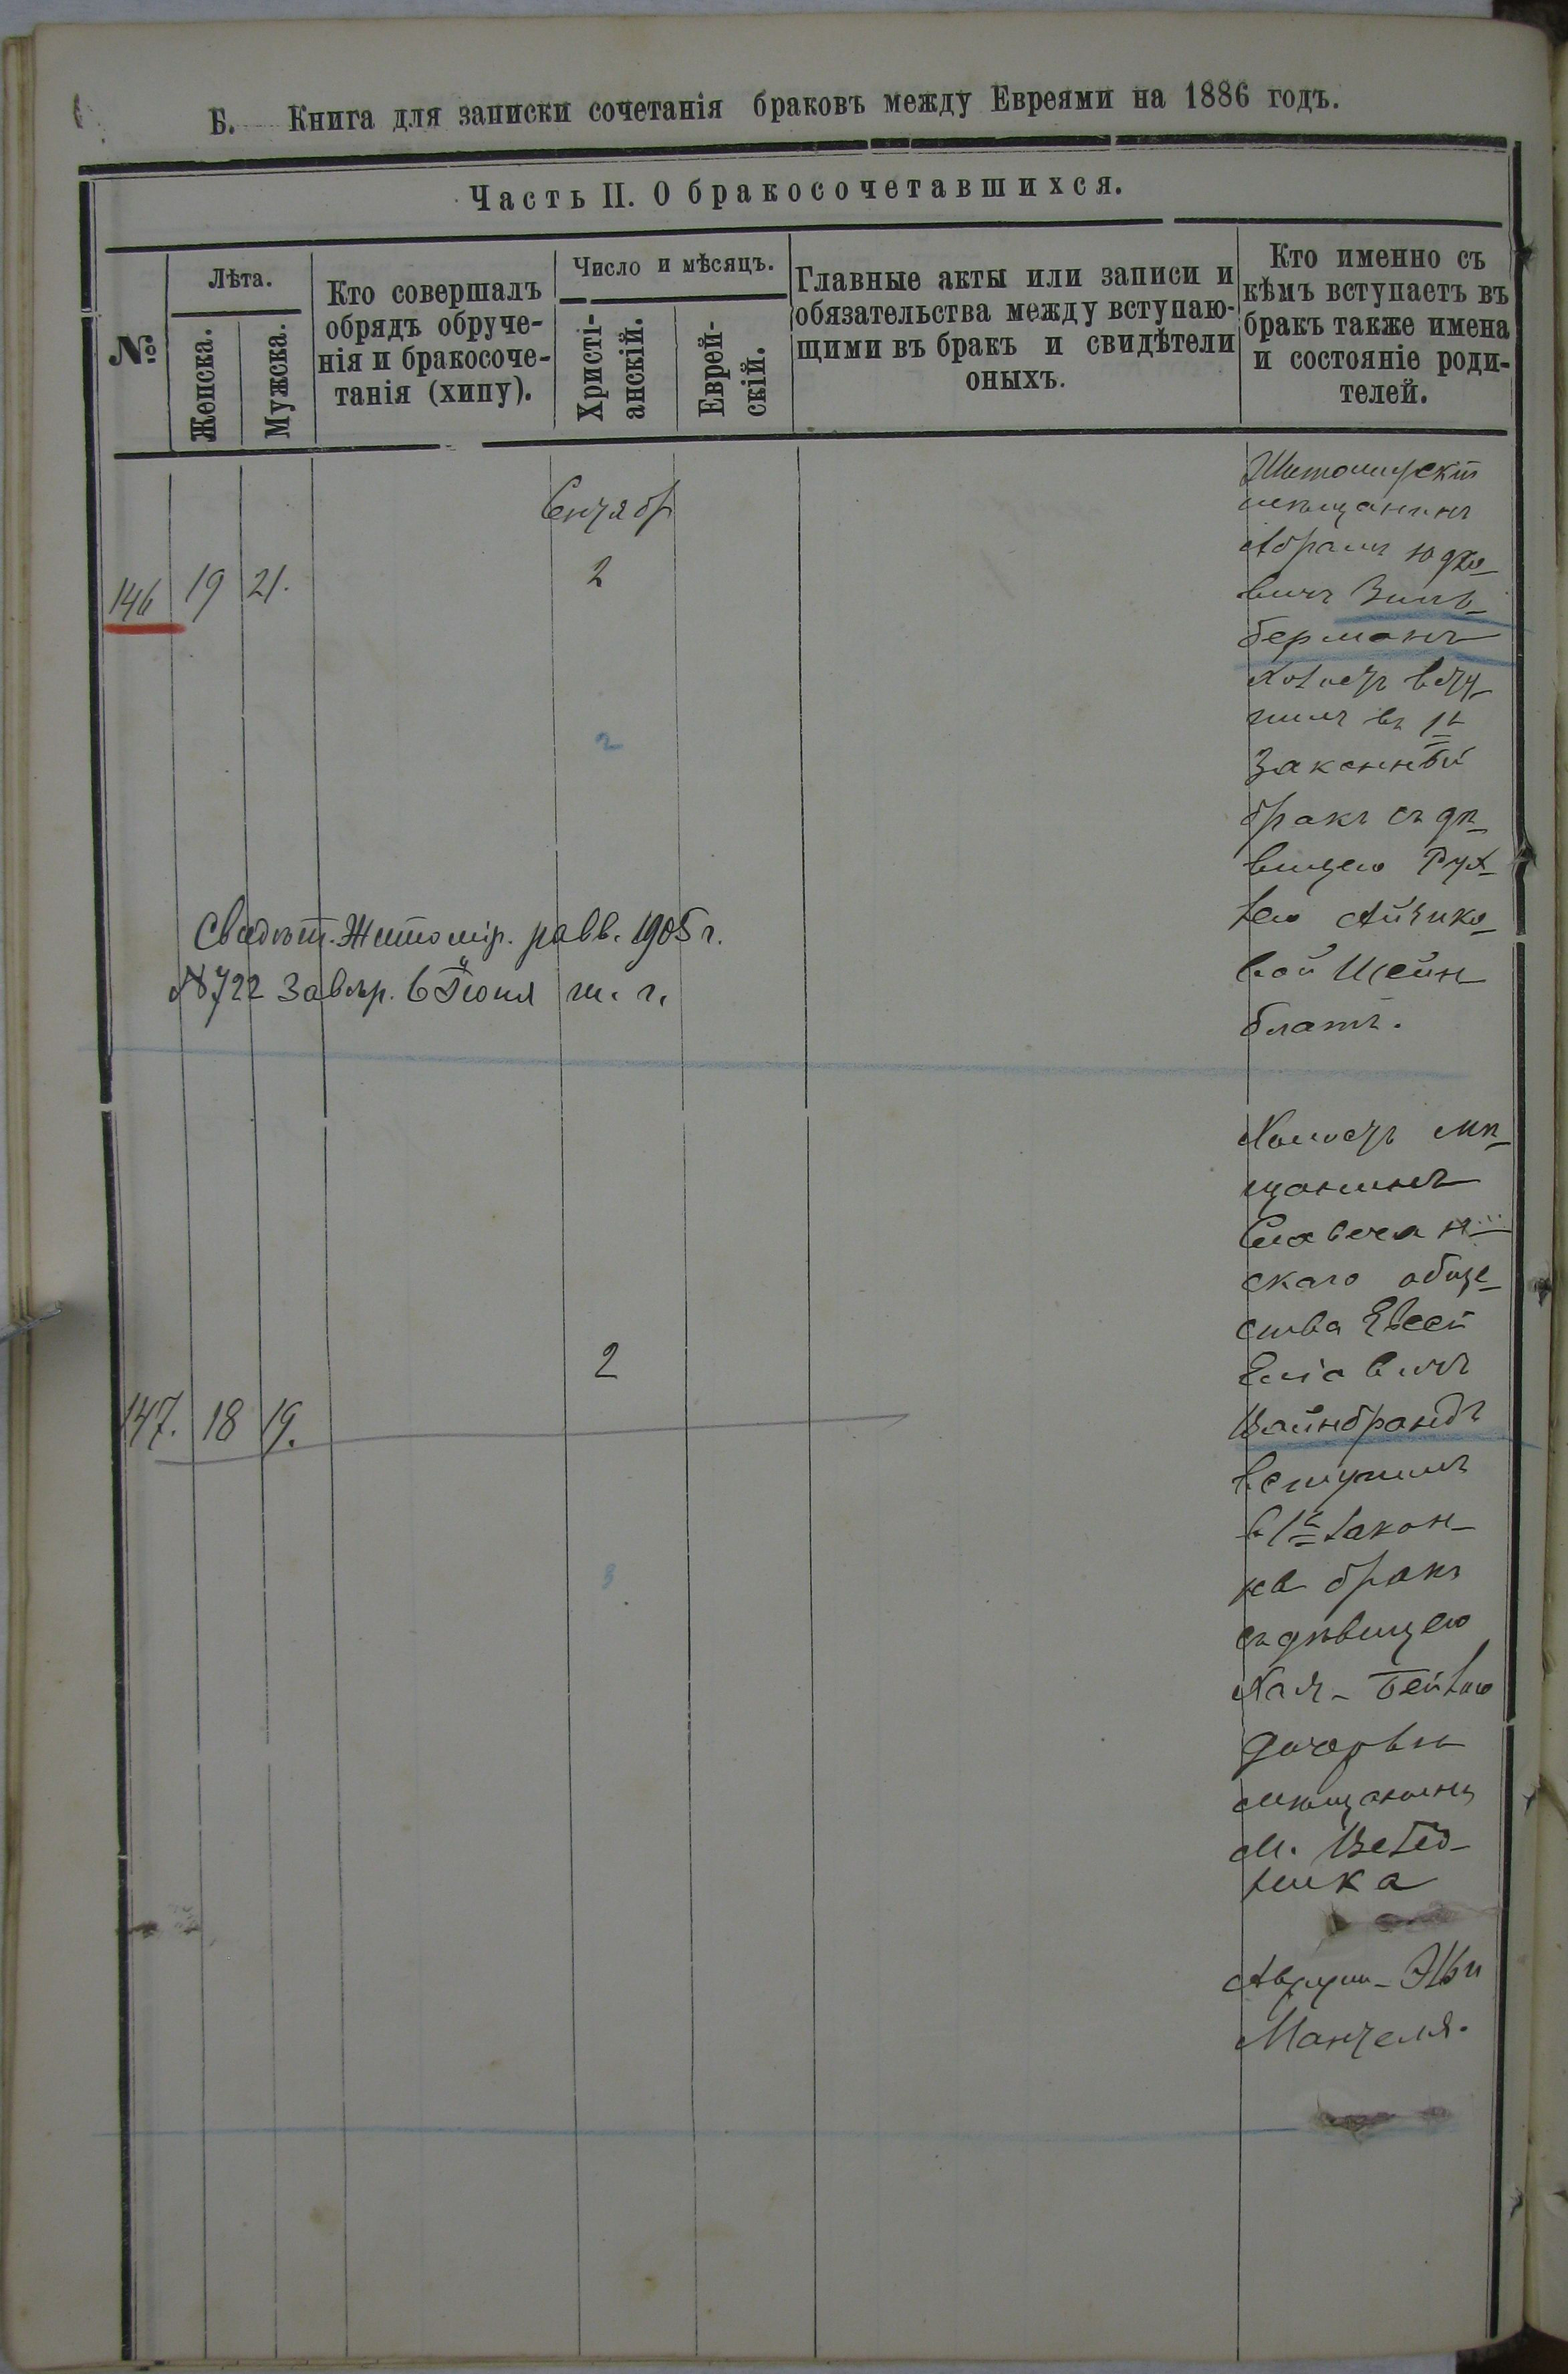 Б. Книга для записки сочетанія браковъ между Евреями на 1886 годъ.
Часть II. О бракосочетавшихся.
№
Лѣта.
Женска.
Мужска.
Кто совершалъ
обрядъ обруче-
нія и бракосоче-
танія (хипу).
Число и мѣсяцъ.
Христі-
анскій.
Еврей-
скій.
Главные акты или записи и
обязательства между вступаю-
щими въ бракъ и свидѣтели
оныхъ.
Кто именно съ
кѣмъ вступаетъ въ
бракъ также имена
и состояніе роди-
телей.
146 19 21.
Сентябр
2
2
Житомирскій
мѣщанинъ
Абрамъ Юдко-
вичъ Зиль-
берманъ
Холостъ всту-
пилъ въ 1й
законный
бракъ съ дѣ-
вицею Рух-
лею Айзико-
вой Шейн
блатъ.
Свидѣт. Житомір. равв. 1905 г.
№ 722 Завѣр. 6 Іюня т. г.
147. 18 19.
2
3
Холостъ мѣ-
щанинъ
Словечан
скаго обще-
ства Евсей
Еліовичъ
Вайнбрандъ
вступилъ
въ 1й закон-
бракъ
съ дѣвицею
Хая-Бейлею
дочерью
мѣщанина
м.
Манделя.